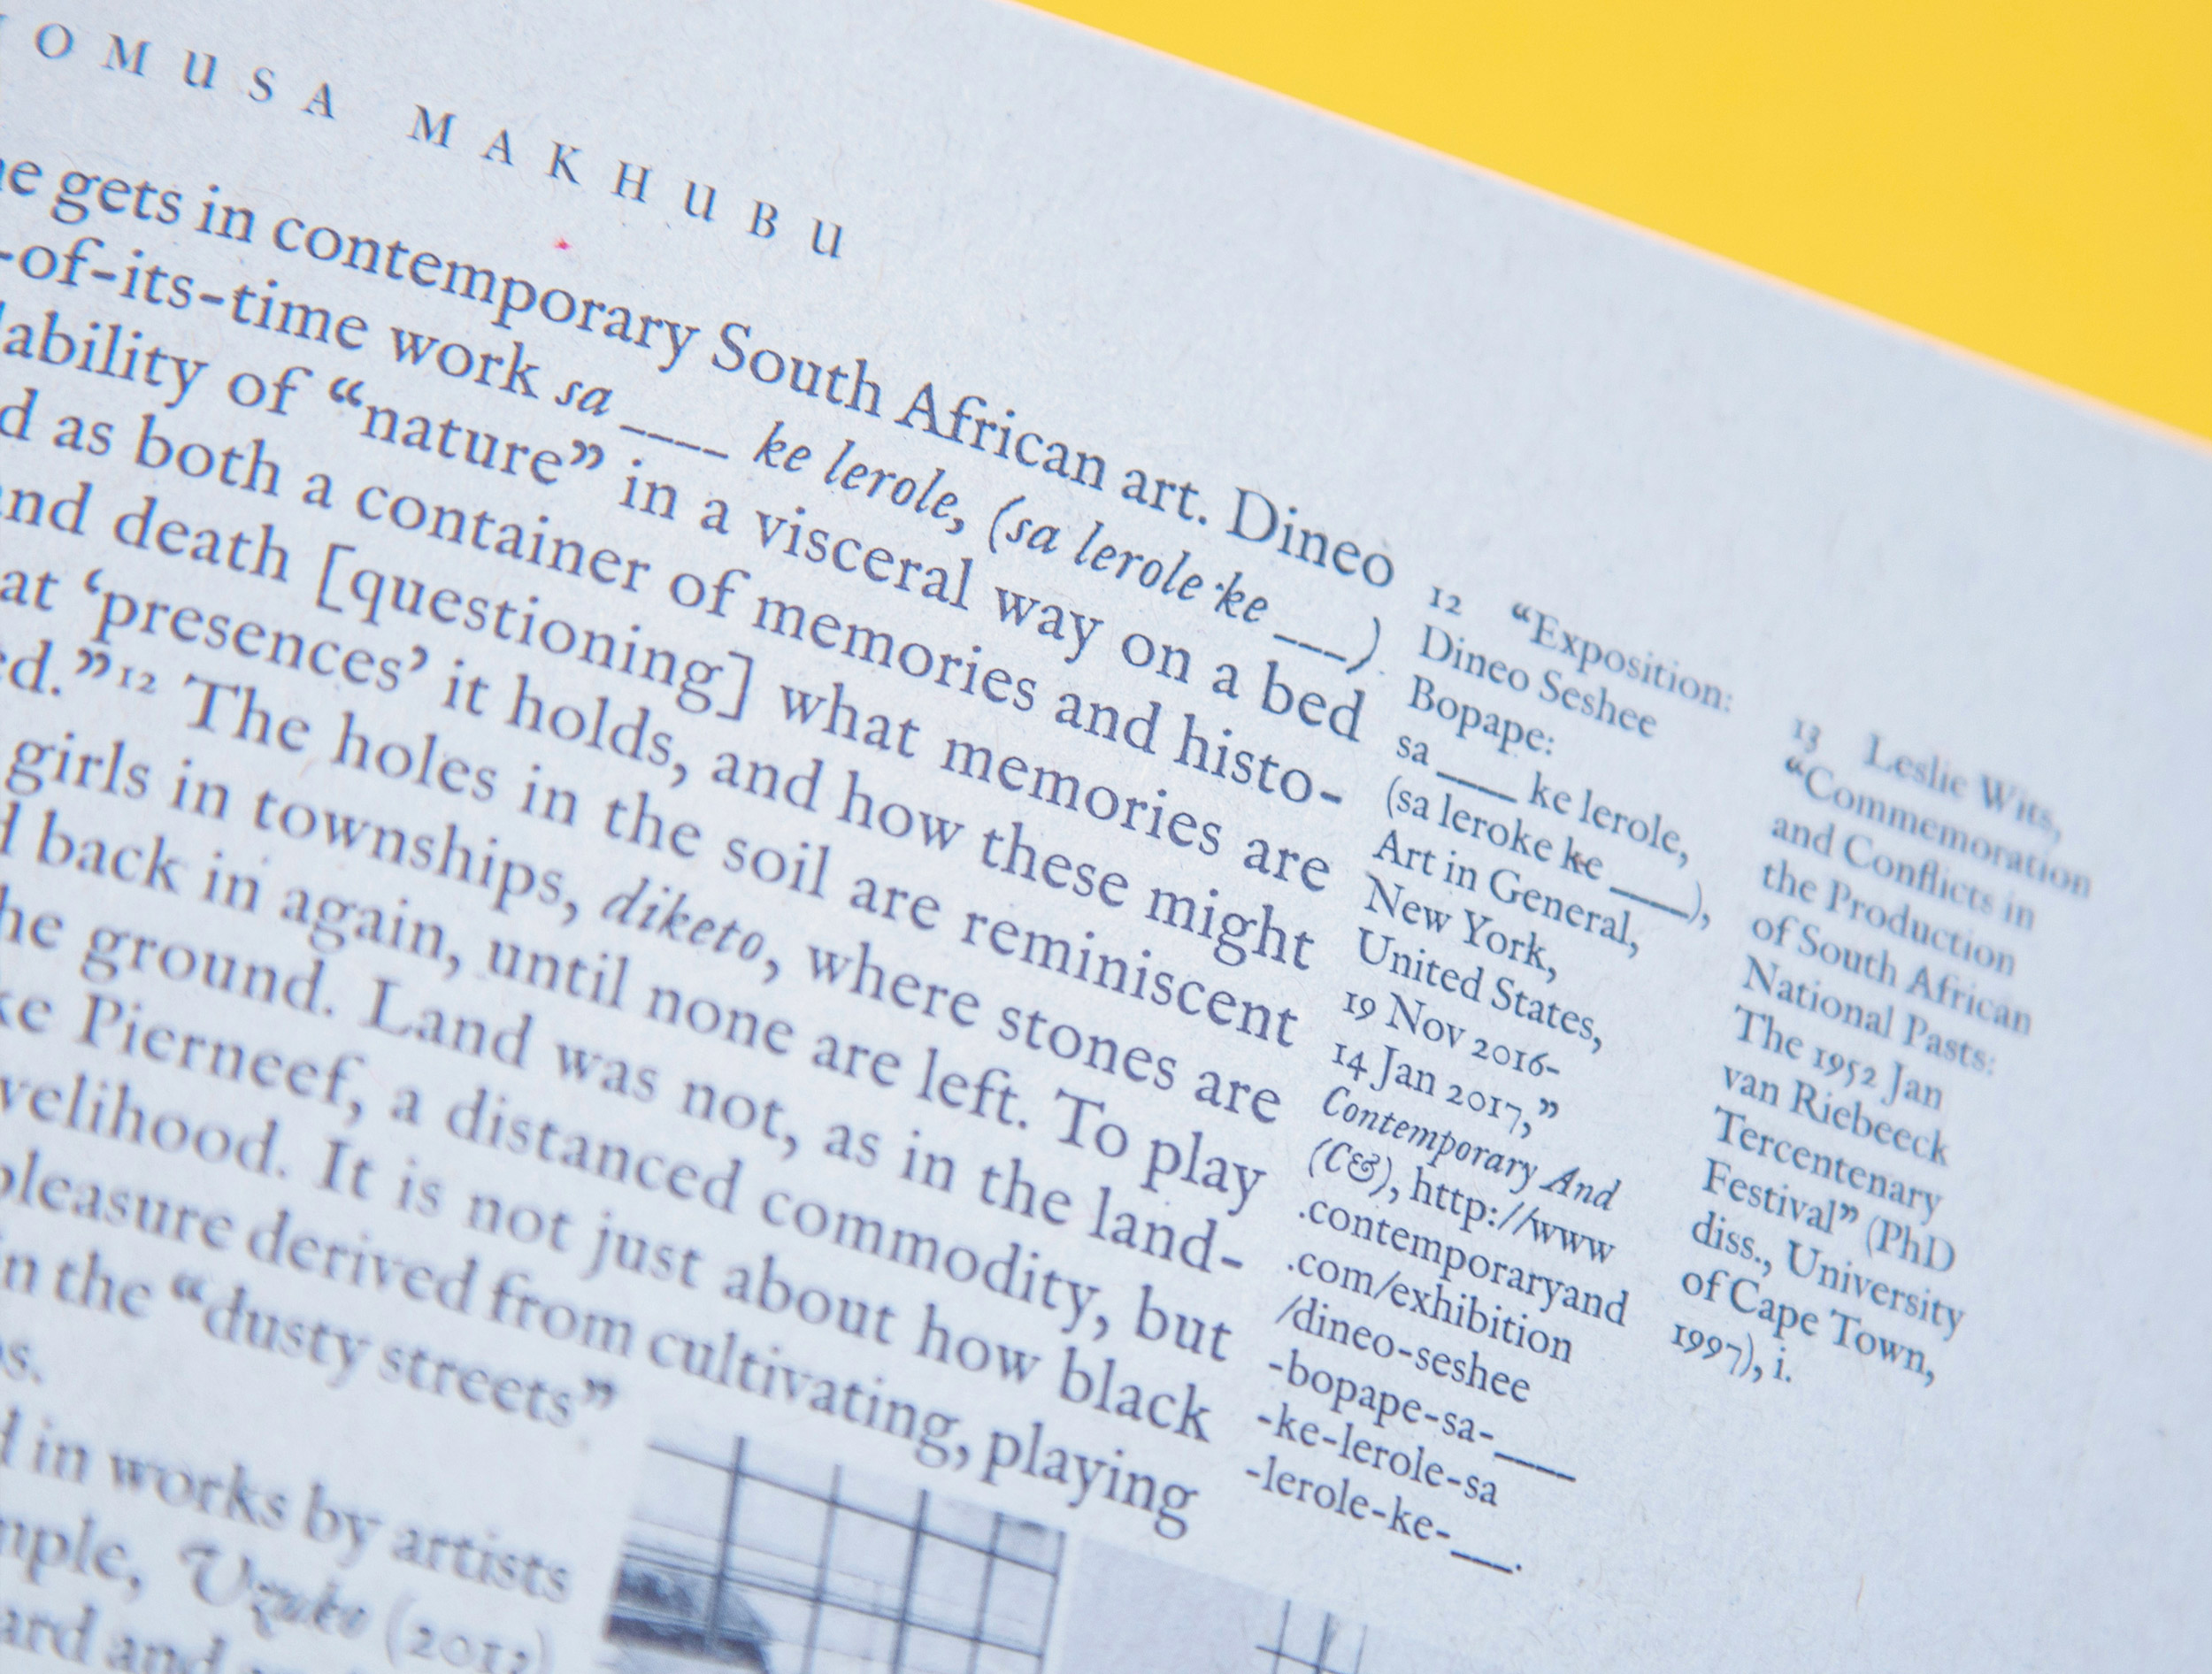 OMUSA MAKHUBU
gets in contemporary South African art. Dineo
-of-its-time work sa ____ ke lerole, (sa lerole ke ___)
ability of “nature” in a visceral way on a bed
d as both a container of memories and histo-
and death [questioning] what memories are
at ‘presences’ it holds, and how these might
ed.”12 The holes in the soil are reminiscent
girls in townships, diketo, where stones are
back in again, until none are left. To play
he ground. Land was not, as in the land-
ke Pierneef, a distanced commodity, but
velihood. It is not just about how black
pleasure derived from cultivating, playing
in the “dusty streets”
s.
d in works by artists
mple, (201
ard and
12 “Exposition:
Dineo Seshee
Bopape:
sa ____ ke lerole,
(sa leroke ke ____),
Art in General,
New York,
United States,
19 Nov 2016-
14 Jan 2017,”
Contemporary And
(C&), http://www
.contemporaryand
.com/exhibition
/dineo-seshee
-bopape-sa-____
-ke-lerole-sa
-lerole-ke-___.
13 Leslie Wits,
“Commemoration
and Conflicts in
the Production
of South African
National Pasts:
The 1952 Jan
van Riebeeck
Tercentenary
Festival” (PhD
diss., University
of Cape Town,
1997), i.